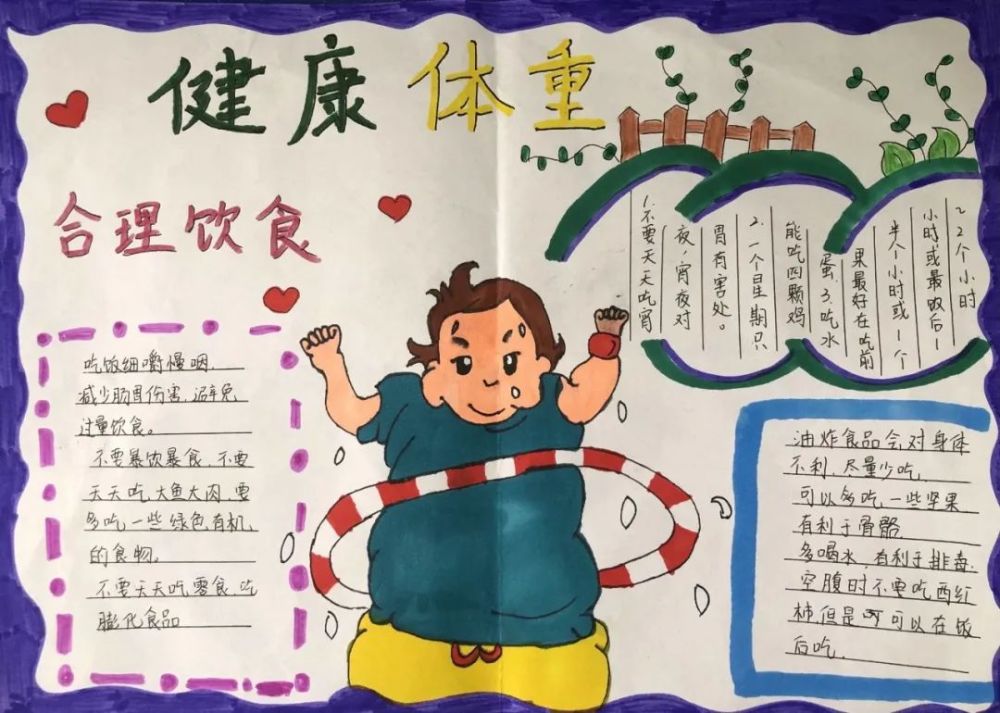 健康体重
合理饮食
1.不要天天吃宵
夜,宵夜对
胃有害处。
2.一个星期只
能吃四颗鸡
蛋.3.吃水
果最好在吃前
半个小时或1个
小时或最败后1
~2个小时
吃饭细嚼慢咽,
减少肠胃伤害,避免
过量饮食。
不要暴饮暴食,不要
天天吃大鱼大肉,要
多吃一些绿色,有机、
的食物。
不要天天吃零食,吃
膨化食品
油炸食品会对身体
不利,尽量少吃,
可以多吃一些坚果
有利于骨骼
多喝水,有利于排毒,
空腹时不要吃西红
柿,但是可以在饭
后吃.